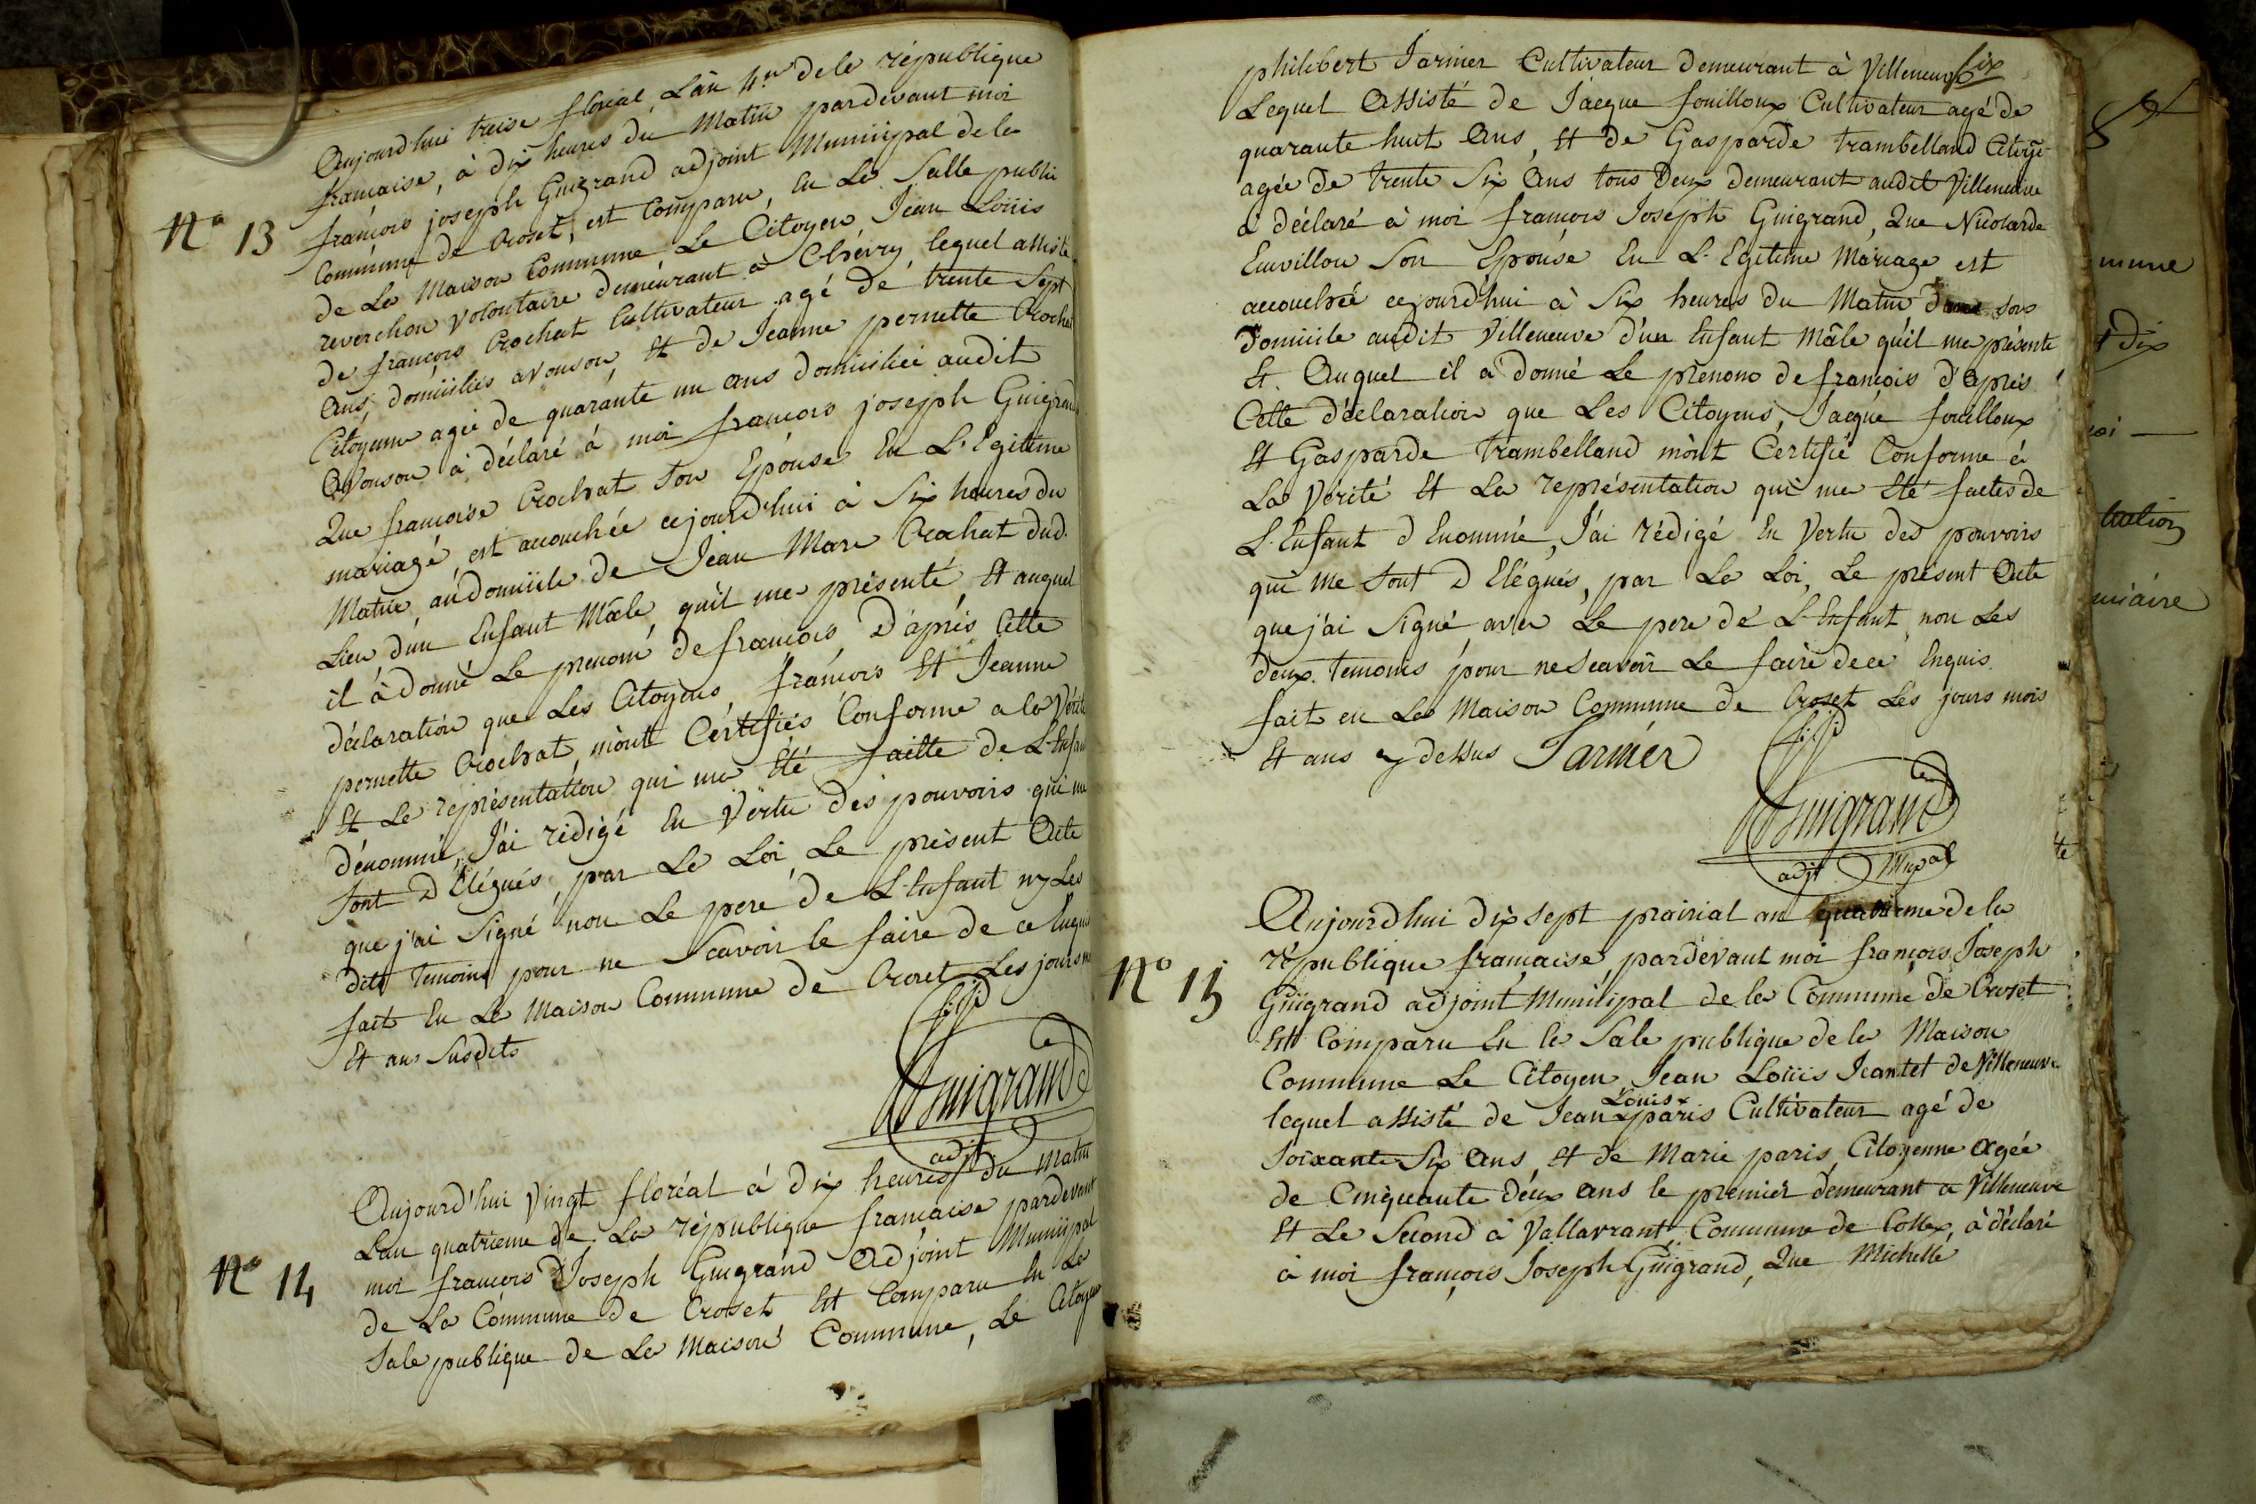 Aujourd'hui treise floréal, L'an 4.me de la république
française, à dix heures du Matin pardevant moi
françois joseph Guigrand adjoint Municipal de la
Nº 13
Commune de Croset, est Comparu, En La Salle publi
de La Maison Commune, Le Citoyen Jean Loüis
reverchon volontaire demeurant à Chévry, lequel assisté
de françois Crochat Cultivateur agé de trente Sept
Ans, domiciliés avouson, Et de Jeanne pernette Crochat
Citoyenne agée de quarante un ans domiciliée audit
Avouson à déclaré à moi françois joseph Guigrand
Que françoise Crochat Son Epouse En L'Egitime
mariage, est accouchée cejourd'hui à Six heures du
Matin, au domicile de Jean Marc Crochat dud.
Lieu d'un Enfant Mâle, qu'il me présenté, Et auquel
il à donné Le prenom de françois, D'aprés Cette
déclaration que Les Citoyens, françois Et Jeanne
pernette Crochat, m'ont Certifiés Conforme a la Vérité
Et La représentation qui me Eté faitte de L'Enfan
dénommé, J'ai rédigé En Vertu des pouvoirs qui me
Sont D Elégués, par La Loi, Le présent Acte
que j'ai Signé non Le pere de L'Enfant ny Les
dits Temoins pour ne Scavoir le faire de ce Enquis
fait En La Maison Commune de Croset Les jours m
Et an Susdits
Guigrand
adjt
Aujourd'hui Vingt floréal à dix heures du Matin
L'an quatrieme de La république française pardevant
moi françois Joseph Guigrand Adjoint Municipal
Nº 14
de La Commune de Croset Est Comparu En La
Sale publique de La Maison Commune, Le Citoyen
six
philibert Jarmier Cultivateur demeurant à Villeneuve
Lequel Assisté de Jacque fouilloux Cultivateur agé de
quarante huit Ans, Et de Gasparde trambelland Citoye
agée de trente Six Ans tous Deux demeurant audit Villeneuve
à déclaré à moi françois Joseph Guigrand, Que Nicolarde
Emvillon Son Epouse En L'Egitime Mariage est
accouchée cejourd'hui à Six heures du Matin dans son
Domicile audit Villeneuve d'un Enfant Mâle qu'il me présente
Et Auquel il a donné Le prenom de françois d'Après
Cette déclaration que Les Citoyens, Jacque fouilloux
Et Gasparde trambelland m'ont Certifié Conforme à
La Vérité Et La représentation qui me Eté faites de
L'Enfant D Enommé, J'ai rédigé En Vertu des pouvoirs
qui me Sont D Elégués, par La Loi, Le présent Acte
que j'ai Signé avec Le pere de L'Enfant non Les
deux Temoins pour ne Scavoir Le faire de ce Enquis
fait en La Maison Commune de Croset Les jours mois
Et ans cy dessus Jarmier
Guigrand
adjt Mupal
Aujourd'hui dix sept prairial an quatrieme de la
république française, pardevant moi françois Joseph
Nº 15
Guigrand adjoint Municipal de la Commune de Croset
Est Comparu En la Sale publique de la Maison
Commune Le Citoyen Jean Loüis Jeantet de Villeneuve
Loüis
lequel assisté de Jean paris Cultivateur agé de
Soixante Six Ans, Et de Marie paris, Citoyenne agée
de Cinquante Deux Ans le premier demeurant a Villeneuve
Et Le Second à Vallavrant, Commune de Collex, à déclaré
à moi françois Joseph Guigrand, Que Michelle
mune
t dix
tution
miaire
te